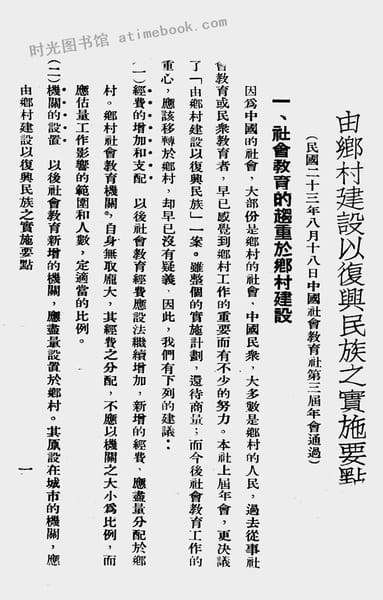 时光图书馆 atimebook.com
由鄉村建設以復興民族之實施要點
（民國二十三年八月十八日中國社會教育社第三屆年會通過）
一、社會教育的趨重於鄉村建設
因爲中國的社會，大部份是鄉村的社會，中國民衆，大多數是鄉村的人民，過去從事社
會教育或民衆教育者，早已感覺到鄉村工作的重要而有不少的努力。本社上屆年會，更決議
了「由鄉村建設以復興民族」一案。雖整個的實施計劃，還待商量；而今後社會教育工作的
重心，應該移轉於鄉村，却早已沒有疑義，因此，我們有下列的建議：
（一）經費的增加和支配　以後社會教育經費應設法繼續增加，新增的經費，應盡量分配於鄉
村。鄉村社會教育機關，自身無取龐大，其經費之分配，不應以機關之大小爲比例，而
應估量工作影響的範圍和人數，定適當的比例。
（二）機關的設置　以後社會教育新增的機關，應盡量設置於鄉村。其原設在城市的機關，應
由鄉村建設以復興民族之實施要點
一